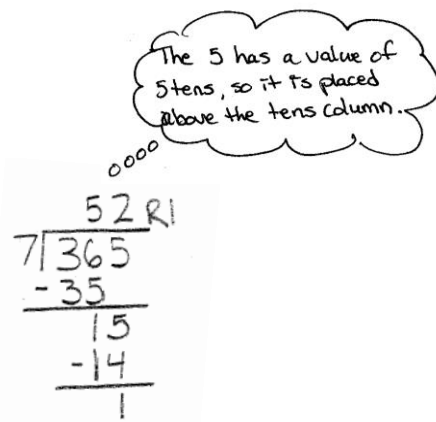 The 5 has a value of
5 tens, so it is placed
above the tens column.
52 R1
7 365
-35
15
-14
1